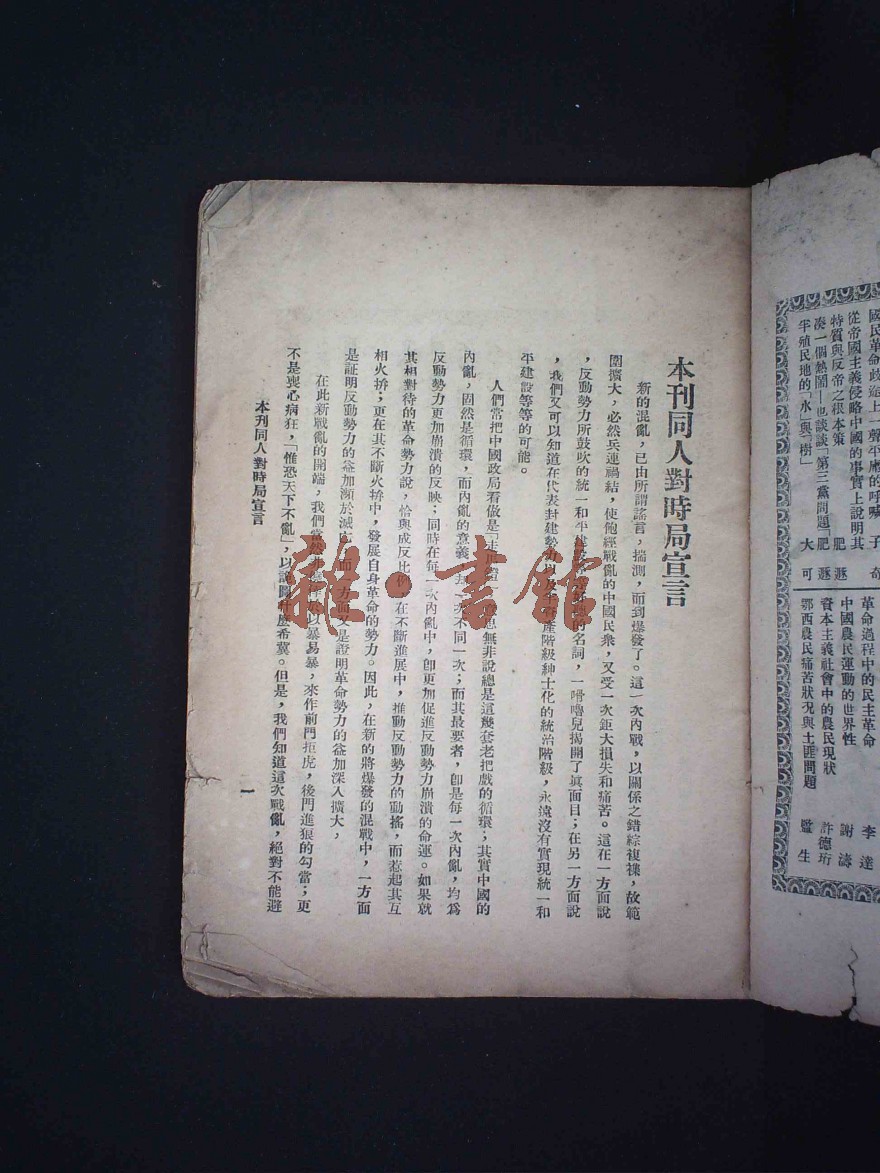 國民革命歧途上一聲平庸的呼喊 子奇
從帝國主義侵略中國的事實上說明其
特質與反帝之根本策 肥遯
湊一個熱鬧—也談談「第三黨問題」肥遯
半殖民地的「水」與「樹」 大可
革命過程中的民主革命 李達
中國農民運動的世界性 謝濤
資本主義社會中的農民現狀 許德珩
鄂西農民痛苦狀況與土匪問題 鑑生
本刊同人對時局宣言
新的混亂，已由所謂謠言，揣測，而到爆發了。這一次內戰，以關係之錯綜複襍，故範
圍擴大，必然兵連禍結，使飽經戰亂的中國民衆，又受一次鉅大損失和痛苦。這在一方面說
，反動勢力所鼓吹的統一和平建設等等好聽的名詞，一嘈嚕兒揭開了眞面目；在另一方面說
，我們又可以知道在代表封建勢力以及資產階級紳士化的統治階級，永遠沒有實現統一和
平建設等等的可能。
人們常把中國政局看做是「走馬燈」，意思無非說總是這幾套老把戲的循環；其實中國的
內亂，固然是循環，而內亂的意義，却一次不同一次；而其最要者，卽是每一次內亂，均爲
反動勢力更加崩潰的反映；同時在每一次內亂中，卽更加促進反動勢力崩潰的命運。如果就
其相對待的革命勢力說，恰與成反比例，在不斷進展中，推動反動勢力的動搖，而惹起其互
相火拚；更在其不斷火拚中，發展自身革命的勢力。因此，在新的將爆發的混戰中，一方面
是証明反動勢力的益加瀕於滅亡，而一方面又是證明革命勢力的益加深入擴大，
在此新戰亂的開端，我們當然非幸 以暴易暴，來作前門拒虎，後門進狼的勾當；更
不是喪心病狂，「惟恐天下不亂」，以說 有什麼希冀。但是，我們知道這次戰亂，絕對不能避
本刊同人對時局宣言
一
雜·書館